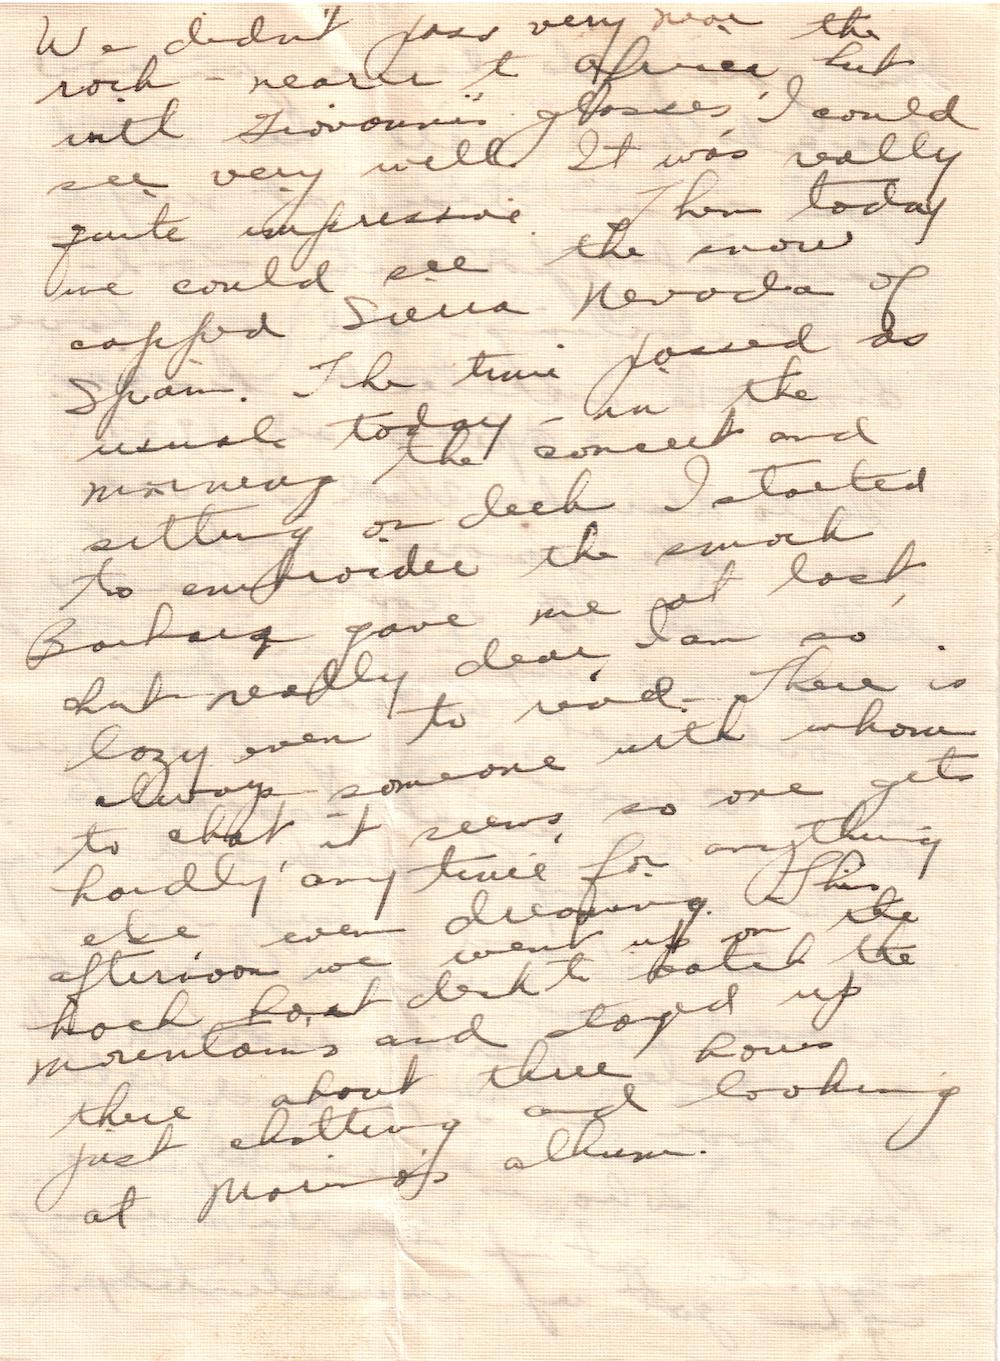 We didn't pass very near the
rock - nearer to Africa but
with Giovanni's glasses I could
see very well. It was really
quite impressive. Then today
we could see the snow
capped Sierra Nevada of
Spain. The time passed as
usual today - in the
morning the concert and
sitting on deck I started
to embroider the smock
Barbara gave me at last,
but really dear, I am so
lazy even to read - There is
always someone with whom
to chat it seems, so one gets
hardly any time for anything
else even dreaming. This
afternoon we went up on the
back boat deck to watch the
mountains and stayed up
there about three hours
just chatting and looking
at Marino's album.